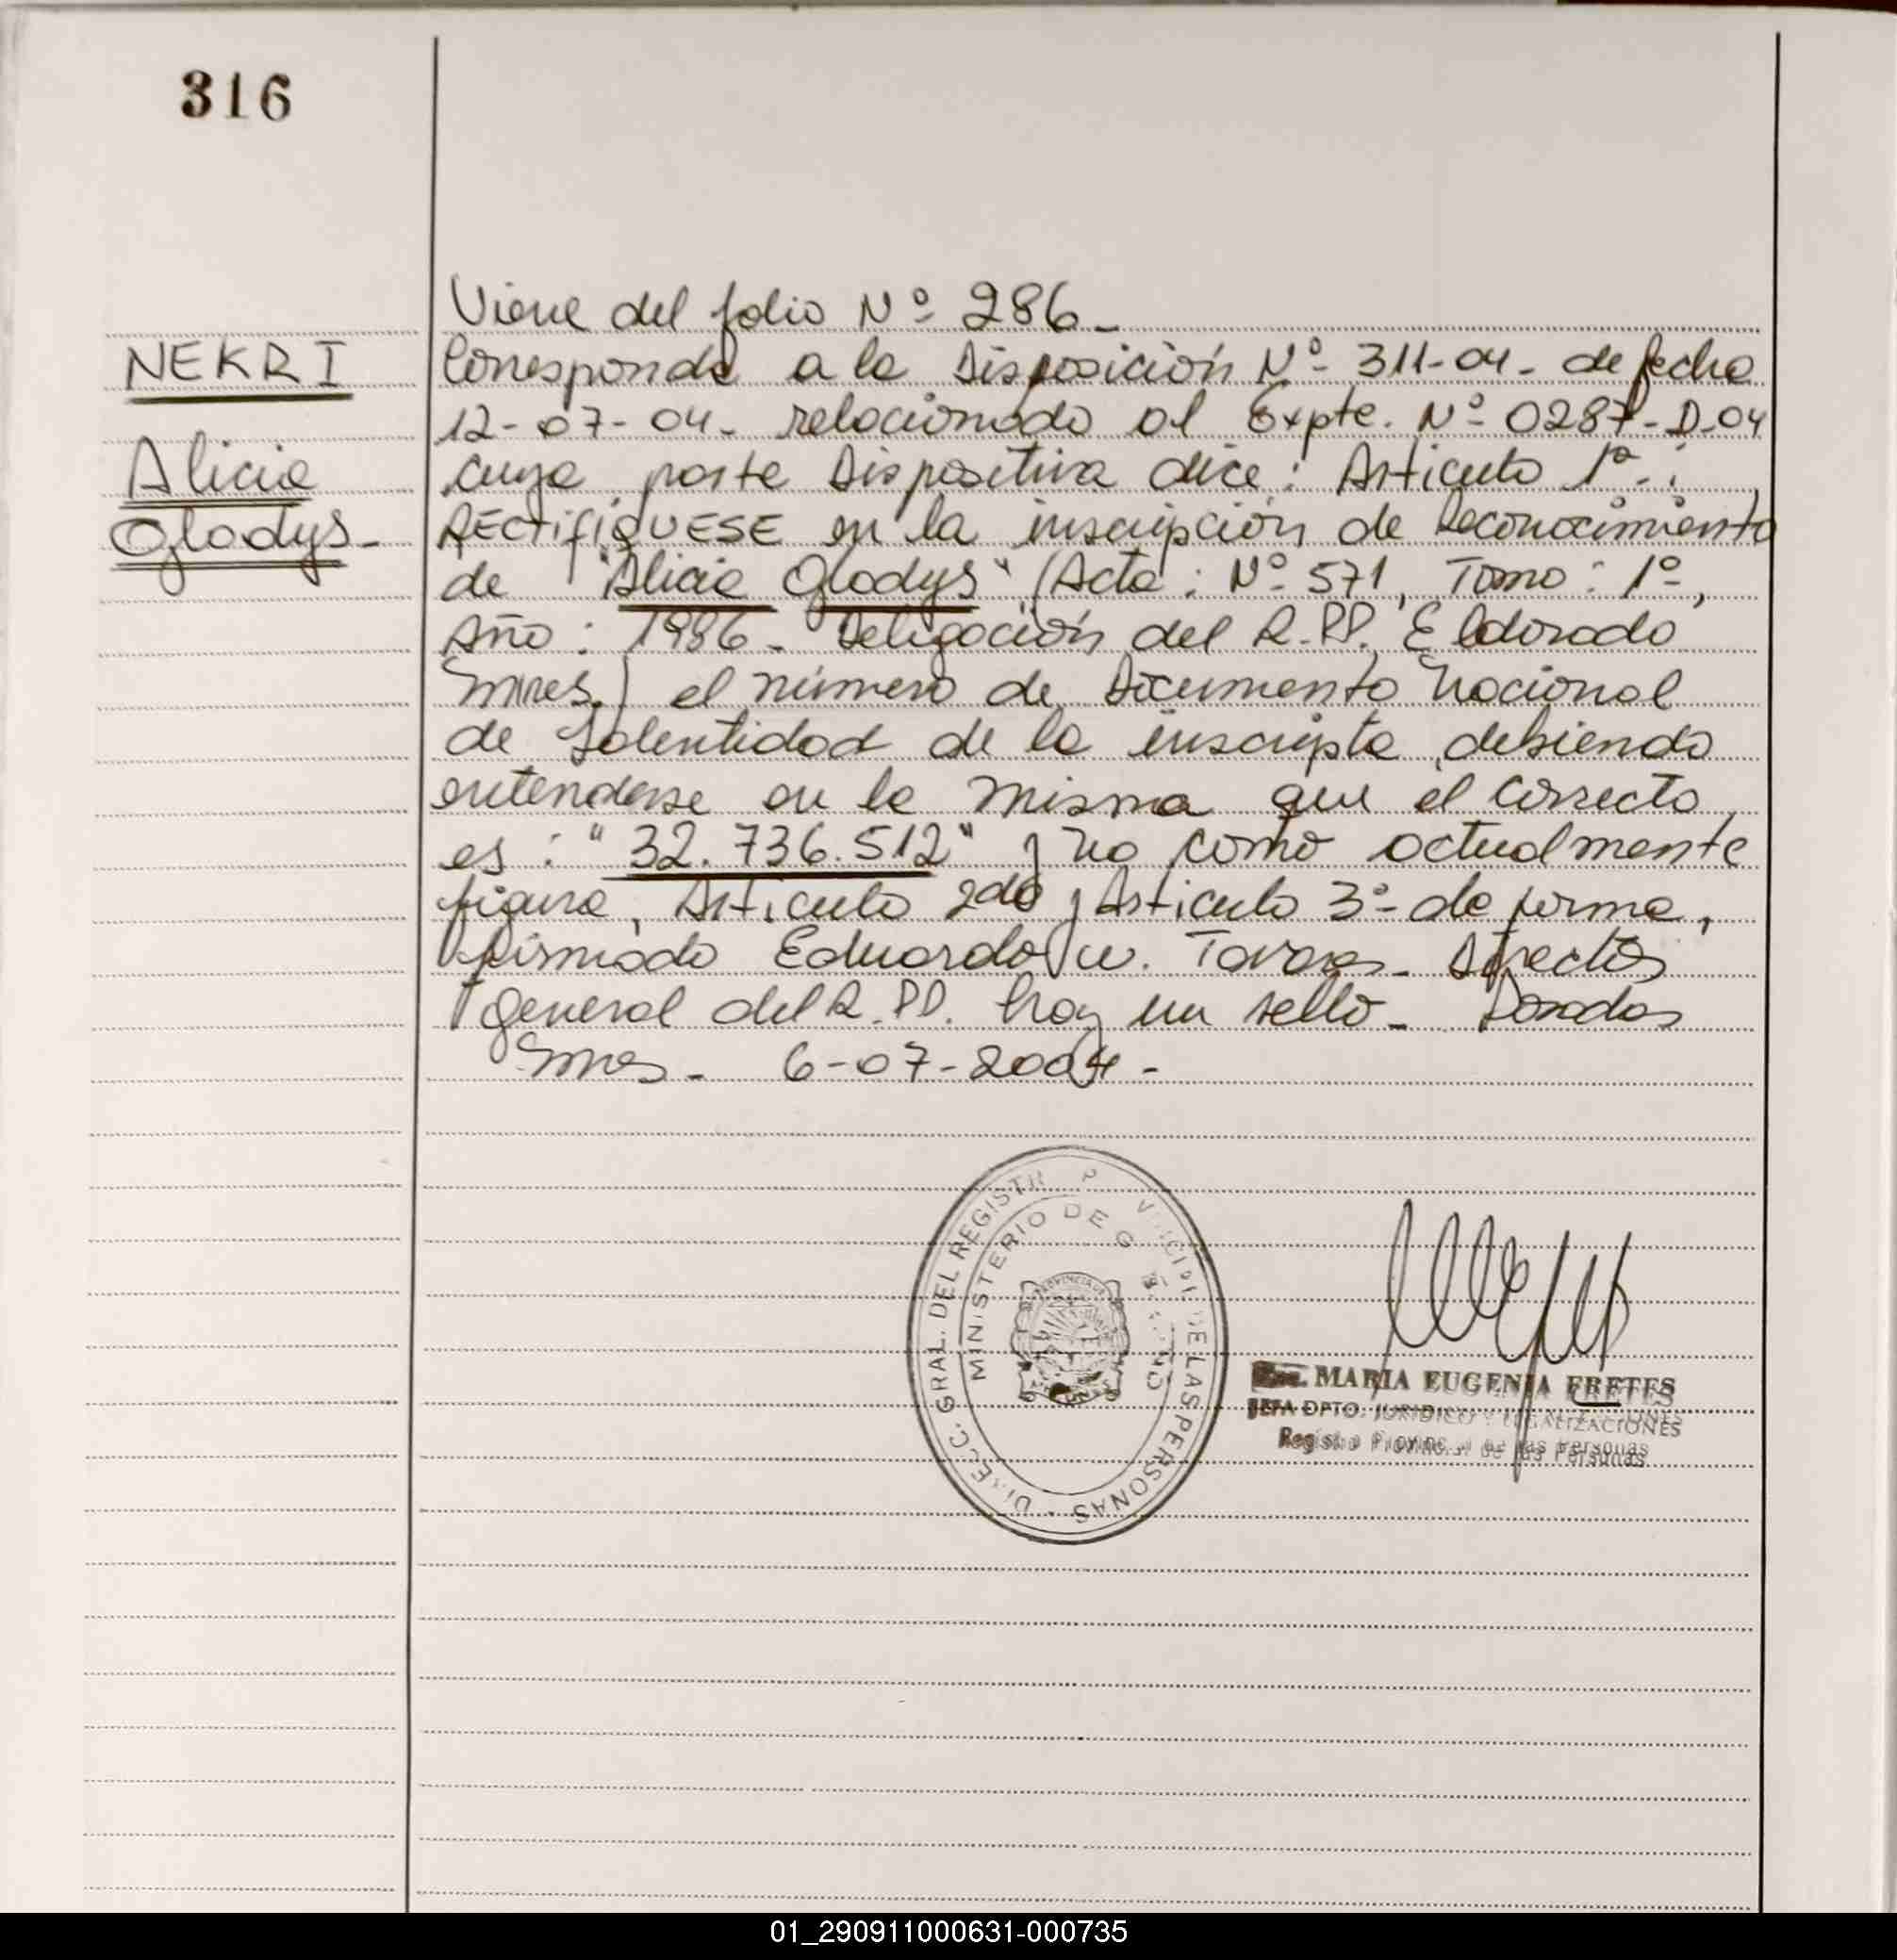 316
Viene del folio Nº 286-
NEKRI
Corresponde a la Disposición Nº 311-04- de fecha
12-07-04- relacionado al Expte. Nº 0287-D-04
Alicia
cuya parte Dispositiva dice: Articulo 1º-:
Gladys-
RECTIFIQUESE en la inscripción de Reconocimiento
de "Alicia Gladys" (Acta: Nº 571, Tomo: 1º,
Año: 1986- Delegación del R.PP. Eldorado
Mnes.) el número de Documento Nacional
de Identidad de la inscripta, debiendo
entenderse en la misma que el correcto
es: "32.736.512" y no como actualmente
figura, Articulo 2do y Articulo 3º- de forma,
firmado Eduardo Tavares- Director
general del R.PP. hay un sello- Posadas
Mnes- 6-07-2004-
DIRECC. GRAL. DEL REGISTR P VINCIAL DE LAS PERSONAS
MINISTERIO DE GOBIERNO
PROVINCIA DE
MARIA EUGENIA FRETES
JEFA DPTO. JURIDICO Y LEGALIZACIONES
Registro Provincial de las Personas
01_290911000631-000735